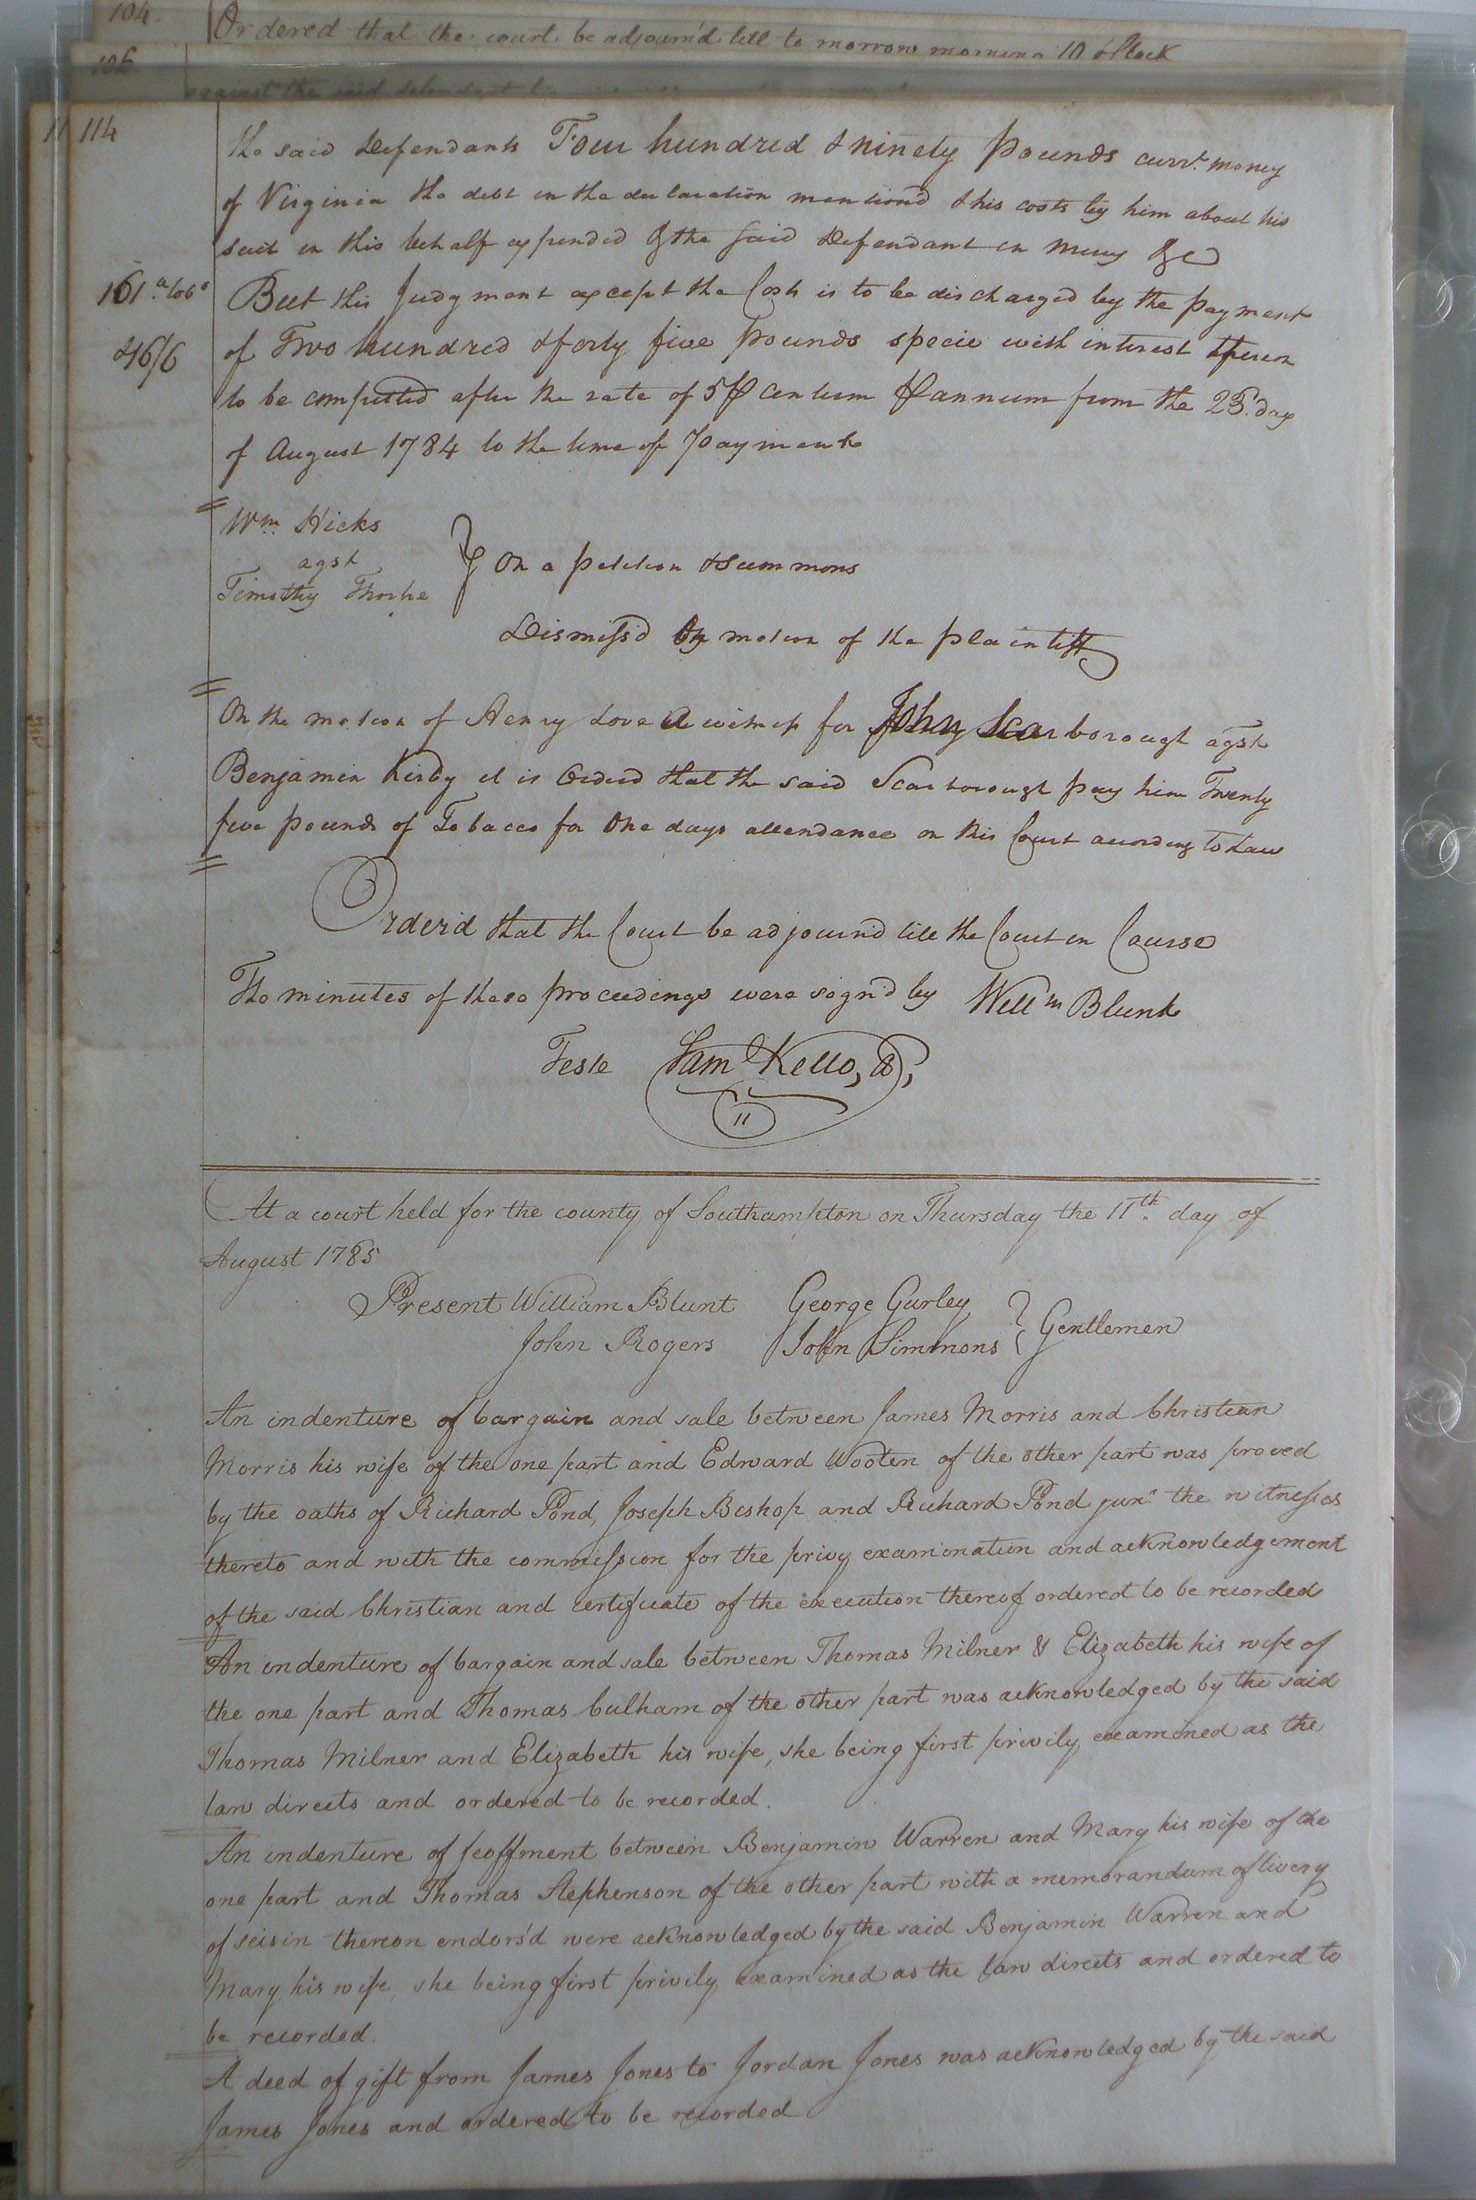 104.
Ordered that the court be adjourn'd till to morrow morning 10 oClock
106
against the said defendant
11 114
the said Defendants Four hundred & ninety pounds curr.t money
of Virginia the debt in the declaration mention'd & his costs by him about his
suit in this behalf expended & the said Defendant in mercy &c
161 a tob.o
But this Judgment except the Costs is to be discharged by the payment
46/6
of Two hundred & forty five pounds specie with interest thereon
to be computed after the rate of 5 P Centum P annum from the 23.d day
of August 1784 to the time of payment
Wm. Hicks
agst
Timothy Thorpe
} On a petition & summons
Dismiss'd by motion of the plaintiff
On the motion of Henry Love a witness for John Scarborough agst
Benjamin Kirby it is Orderd that the said Scarborough pay him Twenty
five pounds of Tobacco for One days attendance on this Court according to Law
Order'd that the Court be adjourn'd till the Court in Course
The minutes of these proceedings were sign'd by Will.m Blunt
Teste Sam.l Kello,
At a court held for the county of Southampton on Thursday the 11th. day of
August 1785
Present William Blunt George Gurley
John Rogers John Simmons } Gentlemen
An indenture of bargain and sale between James Morris and Christian
Morris his wife of the one part and Edward Wooten of the other part was proved
by the oaths of Richard Pond, Joseph Bishop and Richard Pond junr. the witnesses
thereto and with the commission for the privy examination and acknowledgement
of the said Christian and certificate of the execution thereof ordered to be recorded
An indenture of bargain and sale between Thomas Milner & Elizabeth his wife of
the one part and Thomas Culham of the other part was acknowledged by the said
Thomas Milner and Elizabeth his wife, she being first privily examined as the
law directs and ordered to be recorded.
An indenture of feoffment between Benjamin Warren and Mary his wife of the
one part and Thomas Stephenson of the other part with a memorandum of livery
of seisin thereon endors'd were acknowledged by the said Benjamin Warren and
Mary his wife, she being first privily examined as the law directs and ordered to
be recorded.
A deed of gift from James Jones to Jordan Jones was acknowledged by the said
James Jones and ordered to be recorded